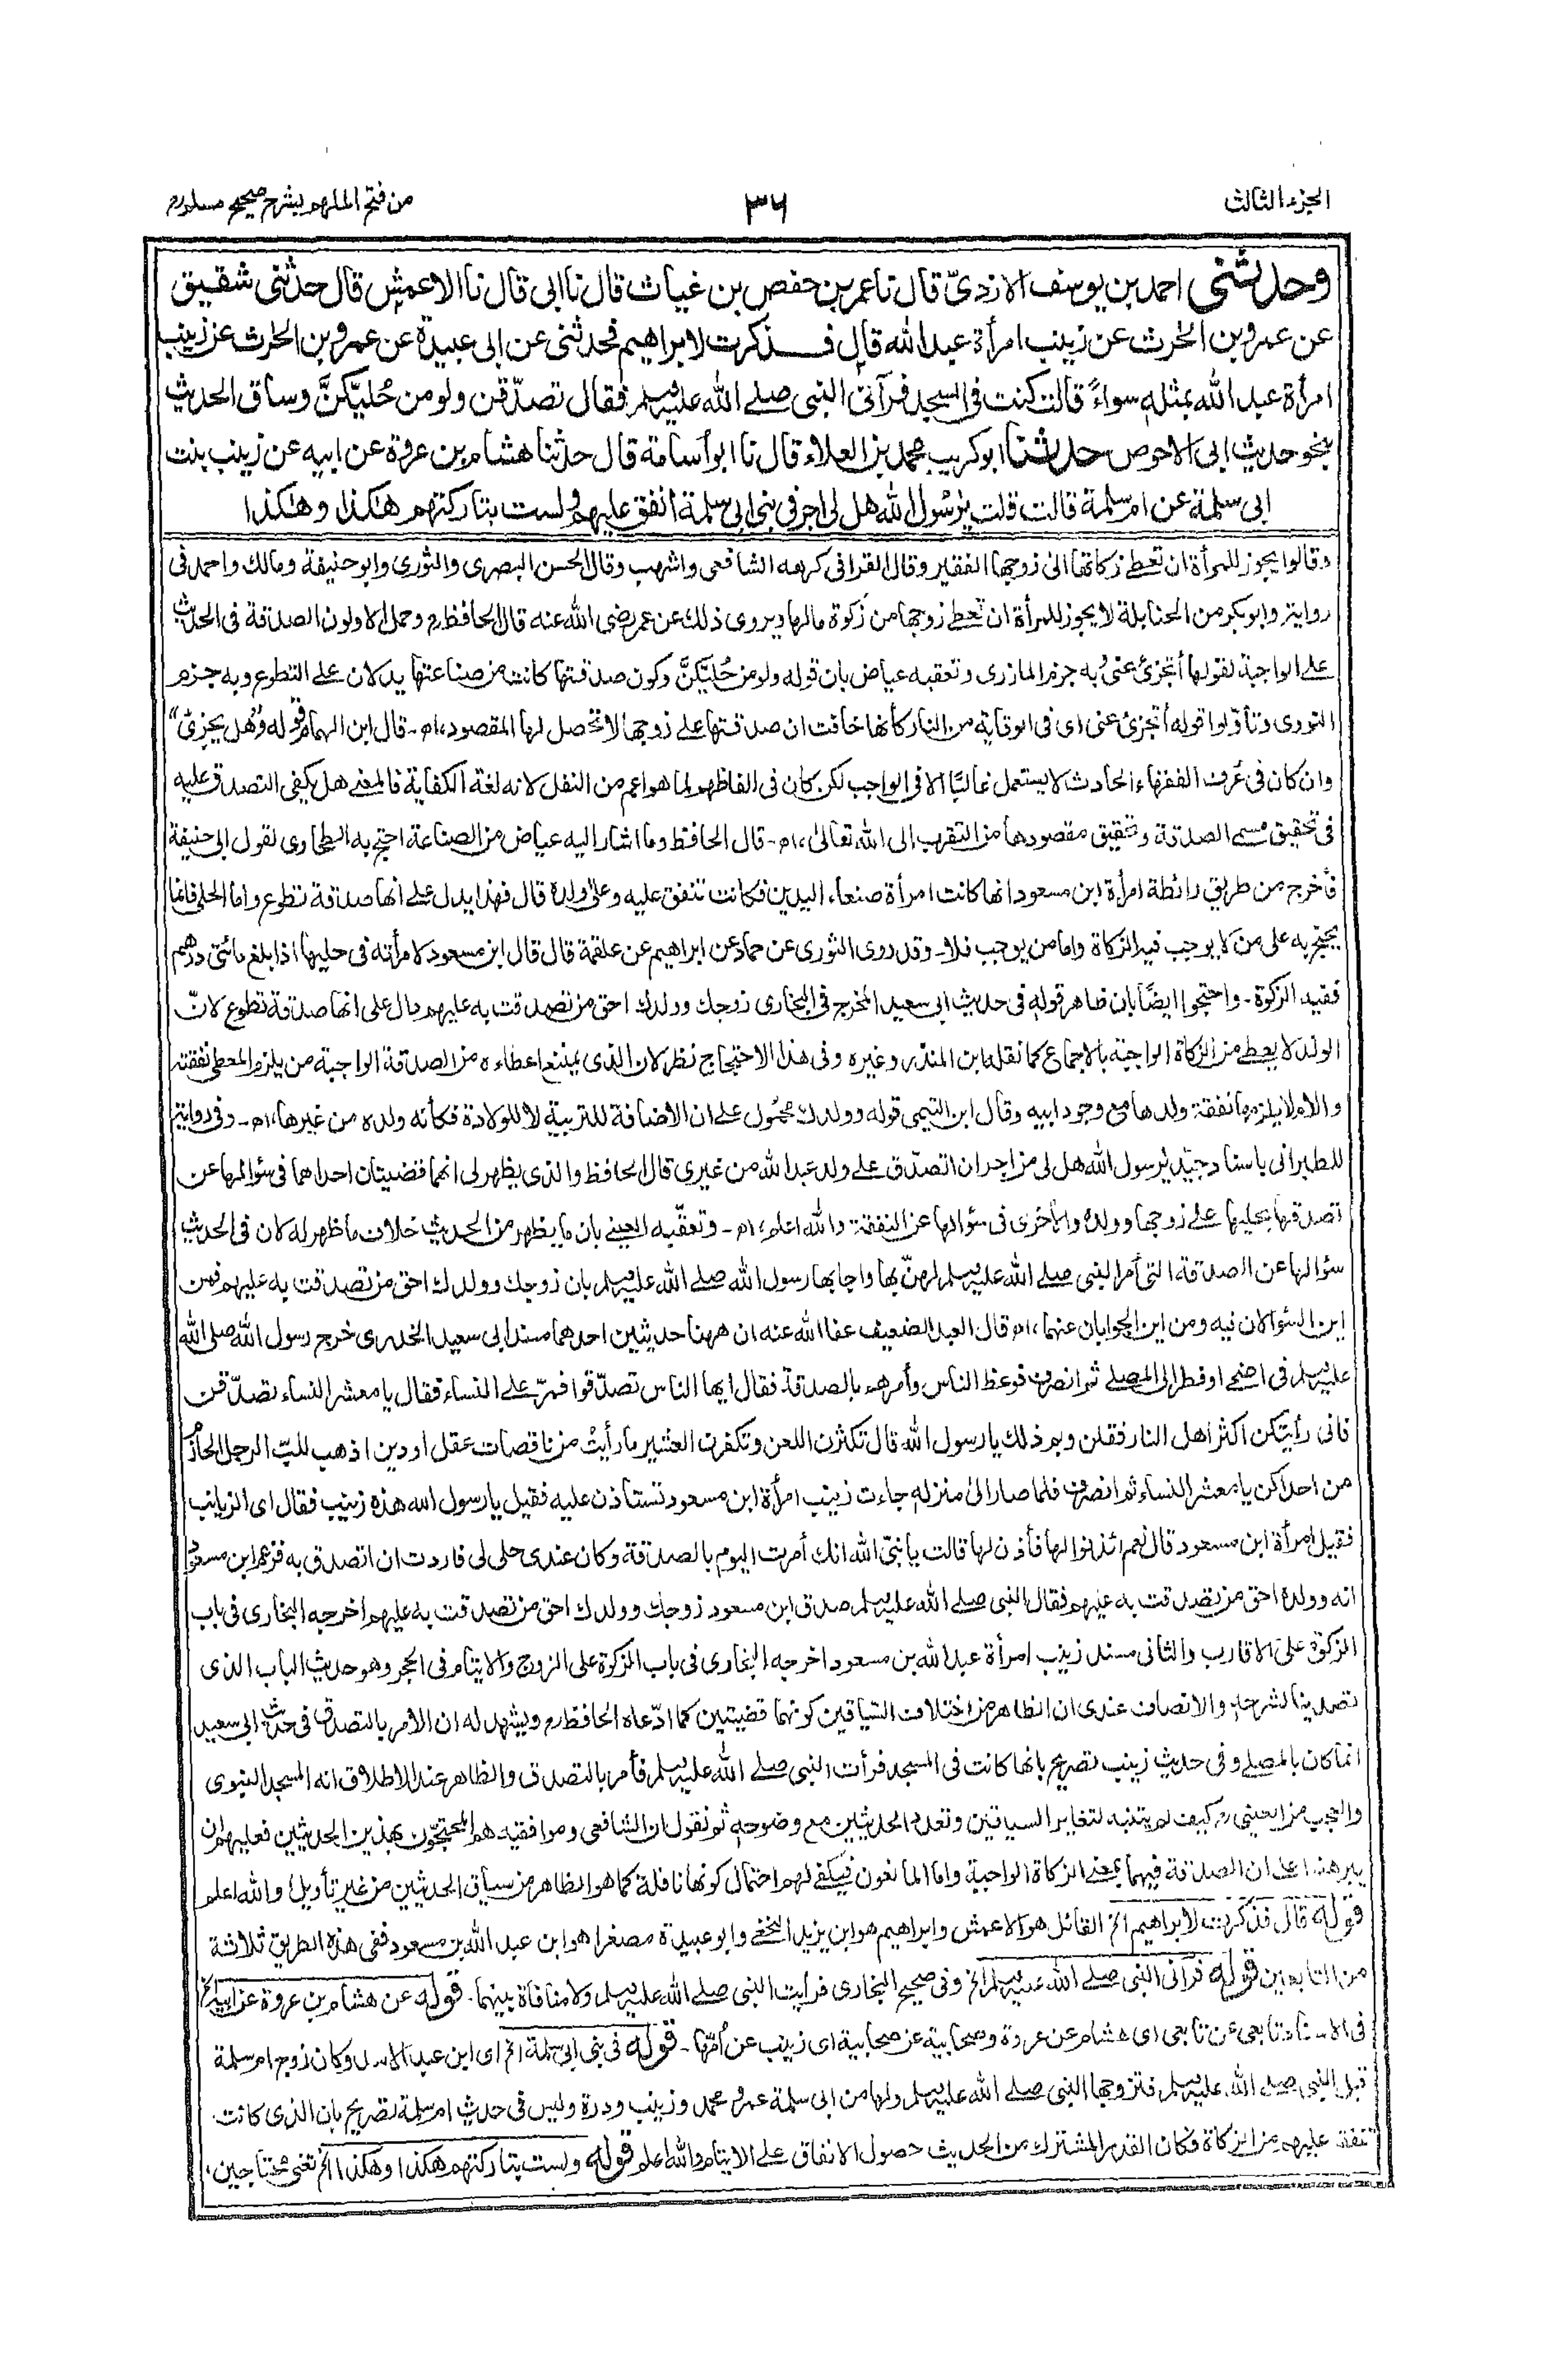 الجزء الثالث
٣٦
من فتح الملهم بشرح صحيح مسلم
وحدثنى احمد بن يوسف الازدىّ قال نا عمر بن حفص بن غياث قال نا ابى قال نا الاعمش قال حدثنى شقيق
عن عمرو بن الحٰرث عن زينب امرأة عبد الله قال فـذكرت لابراهيم فحدثنى عن ابى عبيدة عن عمرو بن الحٰرث عن زينب
امرأة عبد الله بمثلهٖ سواءً قالت كنت فى المسجد فرآنى النبى صلے الله عليه وسلم فقال تصدّقن ولو من حُليّكنَّ وساق الحديث
بنحو حديث ابى الاحوص حدثنا ابو كريب محمد بن العلاء قال نا ابو اُسامة قال حدثنا هشام بن عروة عن ابيه عن زينب بنت
ابى سلمة عن ام سلمة قالت قلت يٰرسول الله هل لى اجر فى بنى ابى سلمة اُنفق عليهم ولست بتاركتهم هٰكذا وهٰكذا
وقالوا يجوز للمرأة ان تعطے زكاتها الىٰ زوجها الفقير وقال القرافى كرهه الشافعى واشهب وقال الحسن البصرى والثورى وابو حنيفة ومالك واحمد فى
رواية وابو بكر من الحنابلة لا يجوز للمرأة ان تعطے زوجها من زكوة مالها ويروى ذلك عن عمر رضى الله عنه قال الحافظ رم وحمل الاولون الصدقة فى الحديث
علے الواجبة لقولها أتجزئ عنى وبه جزم المازرى وتعقبه عياض بان قوله ولو من حُليّكنَّ وكون صدقتها كانت من صناعتها يدلان علے التطوع وبه جزم
النووى وتأوّلوا قوله أتجزئ عنى اى فى الوقاية من النار كأنها خافت ان صدقتها علے زوجها لا تحصل لها المقصود، اه - قال ابن الهمام رم قوله وهل يجزئ"
وان كان فى عُرف الفقهاء الحادث لا يستعمل غالبًا الا فى الواجب لكن كان فى الفاظهم لما هو اعم من النفل لانه لغة الكفاية فالمعنے هل يكفى التصدق عليه
فى تحقيق مسمے الصدقة وتحقيق مقصودها من التقرب الى الله تعالىٰ، اه - قال الحافظ وما اشار اليه عياض من الصناعة احتج به الطحاوى لقول ابى حنيفة
فأخرج من طريق رائطة امرأة ابن مسعود انها كانت امرأة صنعاء اليدين فكانت تنفق عليه وعلىٰ ولده قال فهذا يدل علے انها صدقة تطوع واما الحلى فانما
يحتج به على من لا يوجب فيه الزكاة واما من يوجب فلا - وقد روى الثورى عن حماد عن ابراهيم عن علقمة قال قال ابن مسعود لامرأته فى حليها اذا بلغ مائتى درهم
ففيه الزكوة - واحتجوا ايضًا بان ظاهر قولهٖ فى حديث ابى سعيد المخرج فى البخارى زوجك وولدك احق من تصدقت به عليهم دال على انها صدقة تطوع لانّ
الولد لا يعطے من الزكاة الواجبة بالاجماع كما نقله ابن المنذر وغيره وفى هٰذا الاحتجاج نظر لان الذى يمتنع اعطاءه من الصدقة الواجبة من يلزم المعطى نفقته
والام لا يلزمها نفقة ولدها مع وجود ابيه وقال ابن التيمى قوله وولدك محمول علے ان الاضافة للتربية لا للولادة فكأنه ولده من غيرها، اه - وفى رواية
للطبرانى باسناد جيّد يٰرسول الله هل لى من اجر ان اتصدّق علے ولد عبد الله من غيرى قال الحافظ والذى يظهر لى انهما قضيتان احداهما فى سؤالها عن
تصدقها بحليها علے زوجها وولده والاخرى فى سؤالها عن النفقة والله اعلم، اه - وتعقّبه العينے بان ما يظهر من الحديث خلاف ما ظهر له لان فى الحديث
سؤالها عن الصدقة التى أمر النبى صلے الله عليه وسلم لهنّ بها واجابها رسول الله صلے الله عليه وسلم بان زوجك وولدك احق من تصدقت به عليهم فمن
اين السؤالان فيه ومن اين الجوابان عنهما، اه قال العبد الضعيف عفا الله عنه ان ههنا حديثين احدهما مسند ابى سعيد الخدرى خرج رسول الله صلى الله
عليه وسلم فى اضحےٰ او فطر الى المصلے ثم انصرف فوعظ الناس وأمرهم بالصدقة فقال ايها الناس تصدّقوا فمرّ علے النساء فقال يا معشر النساء تصدّقن
فانى رأيتكن اكثر اهل النار فقلن وبم ذلك يا رسول الله قال تكثرن اللعن وتكفرن العشير ما رأيتُ من ناقصات عقل او دين اذهب للبّ الرجل الحازم
من احداكن يا معشر النساء ثم انصرف فلما صار الىٰ منزلهٖ جاءت زينب امرأة ابن مسعود تستاذن عليه فقيل يا رسول الله هذه زينب فقال اى الزيانب
فقيل امرأة ابن مسعود قال نعم ائذنوا لها فأذن لها قالت يا نبىّ الله انك أمرت اليوم بالصدقة وكان عندى حلى لى فاردت ان اتصدق به فزعم ابن مسعود
انه وولده احق من تصدقت به عليهم فقال النبى صلے الله عليه وسلم صدق ابن مسعود زوجك وولدك احق من تصدقت به عليهم اخرجه البخارى فى باب
الزكوة على الاقارب والثانى مسند زينب امرأة عبد الله بن مسعود اخرجه البخارى فى باب الزكوة على الزوج والايتام فى الحجر وهو حديث الباب الذى
تصدينا لشرحهٖ والانصاف عندى ان الظاهر من اختلاف السّياقين كونهما قضيتين كما ادّعاه الحافظ رم ويشهد له ان الامر بالتصدق فى حديث ابى سعيد
انما كان بالمصلے وفى حديث زينب تصريح بانها كانت فى المسجد فرأت النبى صلے الله عليه وسلم فأمر بالتصدق والظاهر عند الاطلاق انه المسجد النبوى
والعجب من العينى رم كيف لم يتنبه لتغاير السياقين وتعدد الحديثين مع وضوحهٖ ثم نقول ان الشافعى وموافقيه هم المحتجّون بهذين الحديثين فعليهم ان
يبرهنوا علے ان الصدقة فيهما بمعنے الزكاة الواجبة واما المانعون فيكفے لهم احتمال كونها نافلة كما هو الظاهر من سياق الحديثين من غير تأويل والله اعلم
قوله قال فذكرت لابراهيم الخ القائل هو الاعمش وابراهيم هو ابن يزيد النخعے وابو عبيدة مصغرا هو ابن عبد الله بن مسعود ففى هذه الطريق ثلاثة
من التابعين قوله فرآنى النبى صلے الله عليه وسلم الخ وفى صحيح البخارى فرأيت النبى صلے الله عليه وسلم ولا منافاة بينهما. قوله عن هشام بن عروة عن ابيه الخ
فى الاسناد تابعى عن تابعى اى هشام عن عروة وصحابية عن صحابية اى زينب عن اُمّها - قوله فى بنى ابى سلمة الخ اى ابن عبد الاسد وكان زوج ام سلمة
قبل النبى صلے الله عليه وسلم فتزوجها النبى صلے الله عليه وسلم ولها من ابى سلمة عمرو محمد وزينب ودرة وليس فى حديث ام سلمة تصريح بان الذى كانت
تنفقه عليهم من الزكاة فكان القدر المشترك من الحديث حصول الانفاق علے الايتام والله اعلم قوله ولست بتاركتهم هكذا وهكذا الخ تعنى محتاجين،